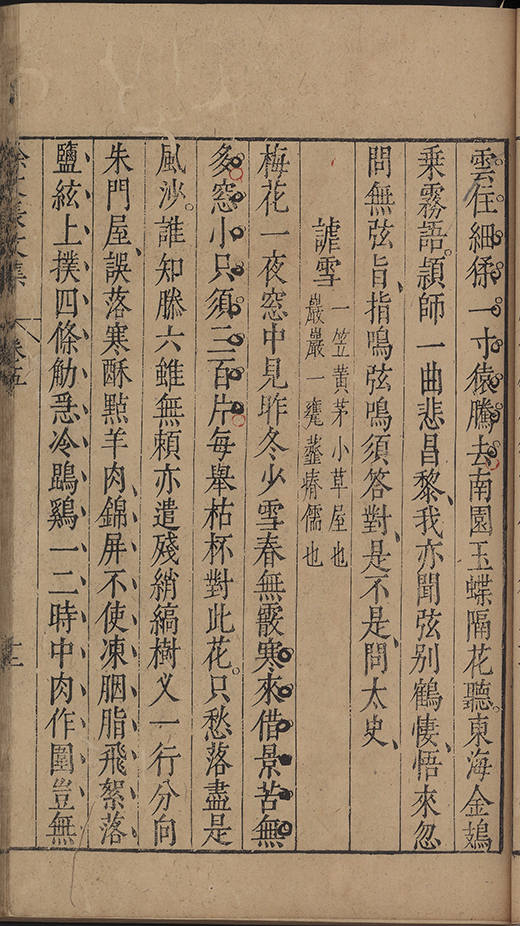 雲住細猱一寸猿騰去南園玉蝶隔花聽東海金鴉
乘霧語頴師一曲悲昌黎我亦聞弦别鶴悽悟來忽
問無弦旨指鳴弦鳴須答對是不是問太史
謔雪
一笠黄茅小草屋也
巖巖一甕虀瘠儒也
梅花一夜窓中見昨冬少雪春無霰寒來借景苦無
多窓小只須三百片每舉枯杯對此花只愁落盡是
風沙誰知滕六雖無頼亦遣殘綃縞樹乂一行分向
朱門屋誤落寒酥點羊肉錦屏不使凍胭脂飛絮落
鹽絃上撲四條觔急冷鵾鷄一二時中肉作圍豈無
徐文長文集
卷五
十三